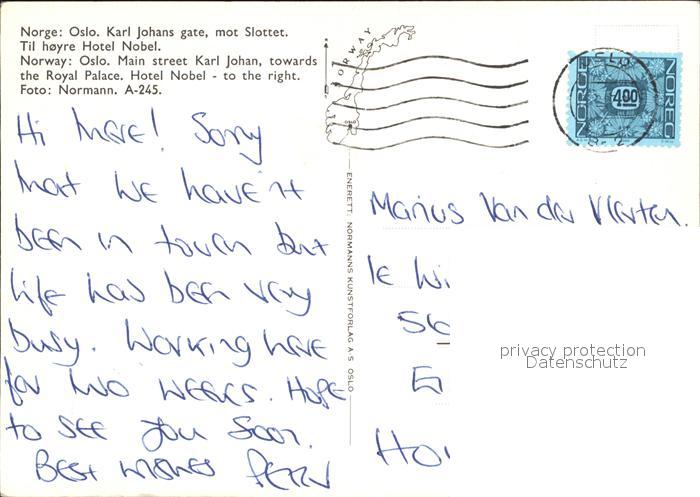 Norge: Oslo. Karl Johans gate, mot Slottet.
Til høyre Hotel Nobel.
Norway: Oslo. Main street Karl Johan, towards
the Royal Palace. Hotel Nobel - to the right.
Foto: Normann. A-245.
NORWAY
NORGE
4.00
NOREG
Hi there! Sorry
that we haven't
been in touch but
life has been very
busy. Working here
for two weeks. Hope
to see you soon.
Best wishes
ENERETT: NORMANNS KUNSTFORLAG A·S OSLO
Marius Van der
privacy protection
Datenschutz